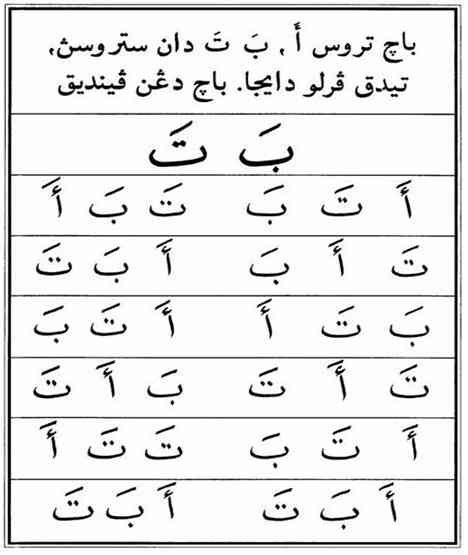 باچ تروس أَ , بَ تَ دان ستروسڽ,
تيدق ڤرلو دايجا. باچ دڠن ڤينديق
بَ تَ
أَ تَ بَ تَ بَ أَ
تَ أَ بَ أَ بَ تَ
بَ تَ أَ أَ تَ بَ
تَ أَ تَ بَ أَ تَ
أَ تَ بَ تَ تَ أَ
أَ بَ تَ أَ بَ تَ